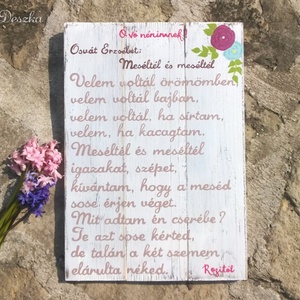 Deszka
Óvó nénimnek
Osvát Erzsébet:
Meséltél és meséltél
Velem voltál örömömben,
velem voltál bajban,
velem voltál, ha sírtam,
velem, ha kacagtam.
Meséltél és meséltél
igazakat, szépet,
kívántam, hogy a meséd
sose érjen véget.
Mit adtam én cserébe?
Te azt sose kérted,
de talán a két szemem
elárulta néked.
Rozitól